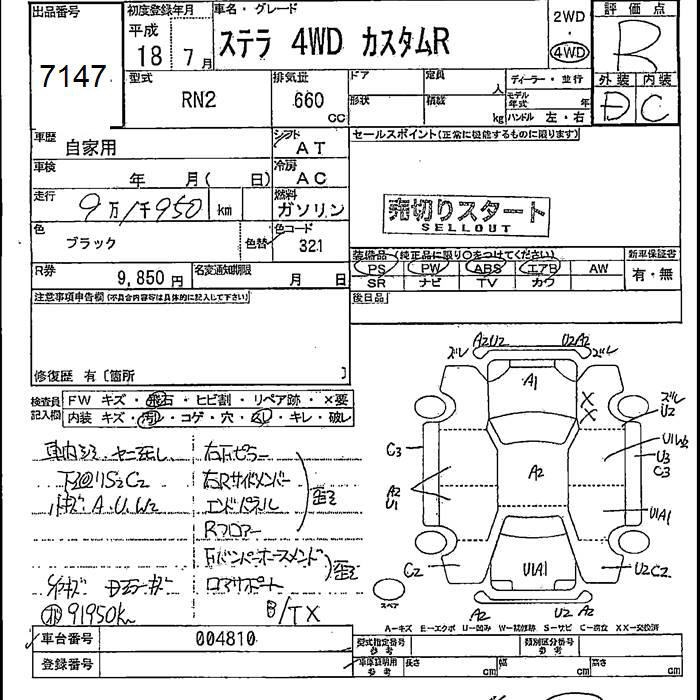 出品番号
7147
初度登録年月
平成
18 7月
車名・グレード
ステラ 4WD カスタムR
2WD
・
4WD
評価点
R
外装 内装
D C
型式
RN2
排気量
660
CC
ドア
形状
定員
人
積載
kg
ディーラー・並行
モデル
年式 年
ハンドル 左・右
車歴
自家用
シフト
AT
車検
年 月( 日)
冷房
AC
走行
9万1千950 km
燃料
ガソリン
色
ブラック
色替
色コード
321
R券
9,850円
名変通知期限
月 日
セールスポイント(正常に機能するものに限ります)
売切りスタート
SELLOUT
装備品 (純正品に限り○をつけてください)
PS PW ABS エアB AW
SR ナビ TV カワ
新車保証書
有・無
後日品
注意事項申告欄(不具合内容等は具体的に記入して下さい)
修復歴 有〔箇所 〕
検査員
記入欄
FW キズ・飛石・ヒビ割・リペア跡・×要
内装 キズ・汚レ・コゲ・穴・スレ・キレ・破レ
下回リS2C2
A.U.W2
91950k
右Fピラー
右Rサイドメンバー
エンドパネル
Rフロアー
歪
歪
コアサポート
B/TX
ズレ A2U2 U2A2 ズレ
A1
X
X
ズレ
U2
C3
U1W2
U3
C3
A2
A2
U1
U1A1
C2
U1A1
U2C2
スペア
A2
U2 A2
A-キズ E-エクボ U-凹み W-補修跡 S-サビ C-腐食 XX-交換済
車台番号
004810
登録番号
型式指定番号
参考
類別区分番号
参考
車庫証明用
参考
長さ cm
幅 cm
高さ cm